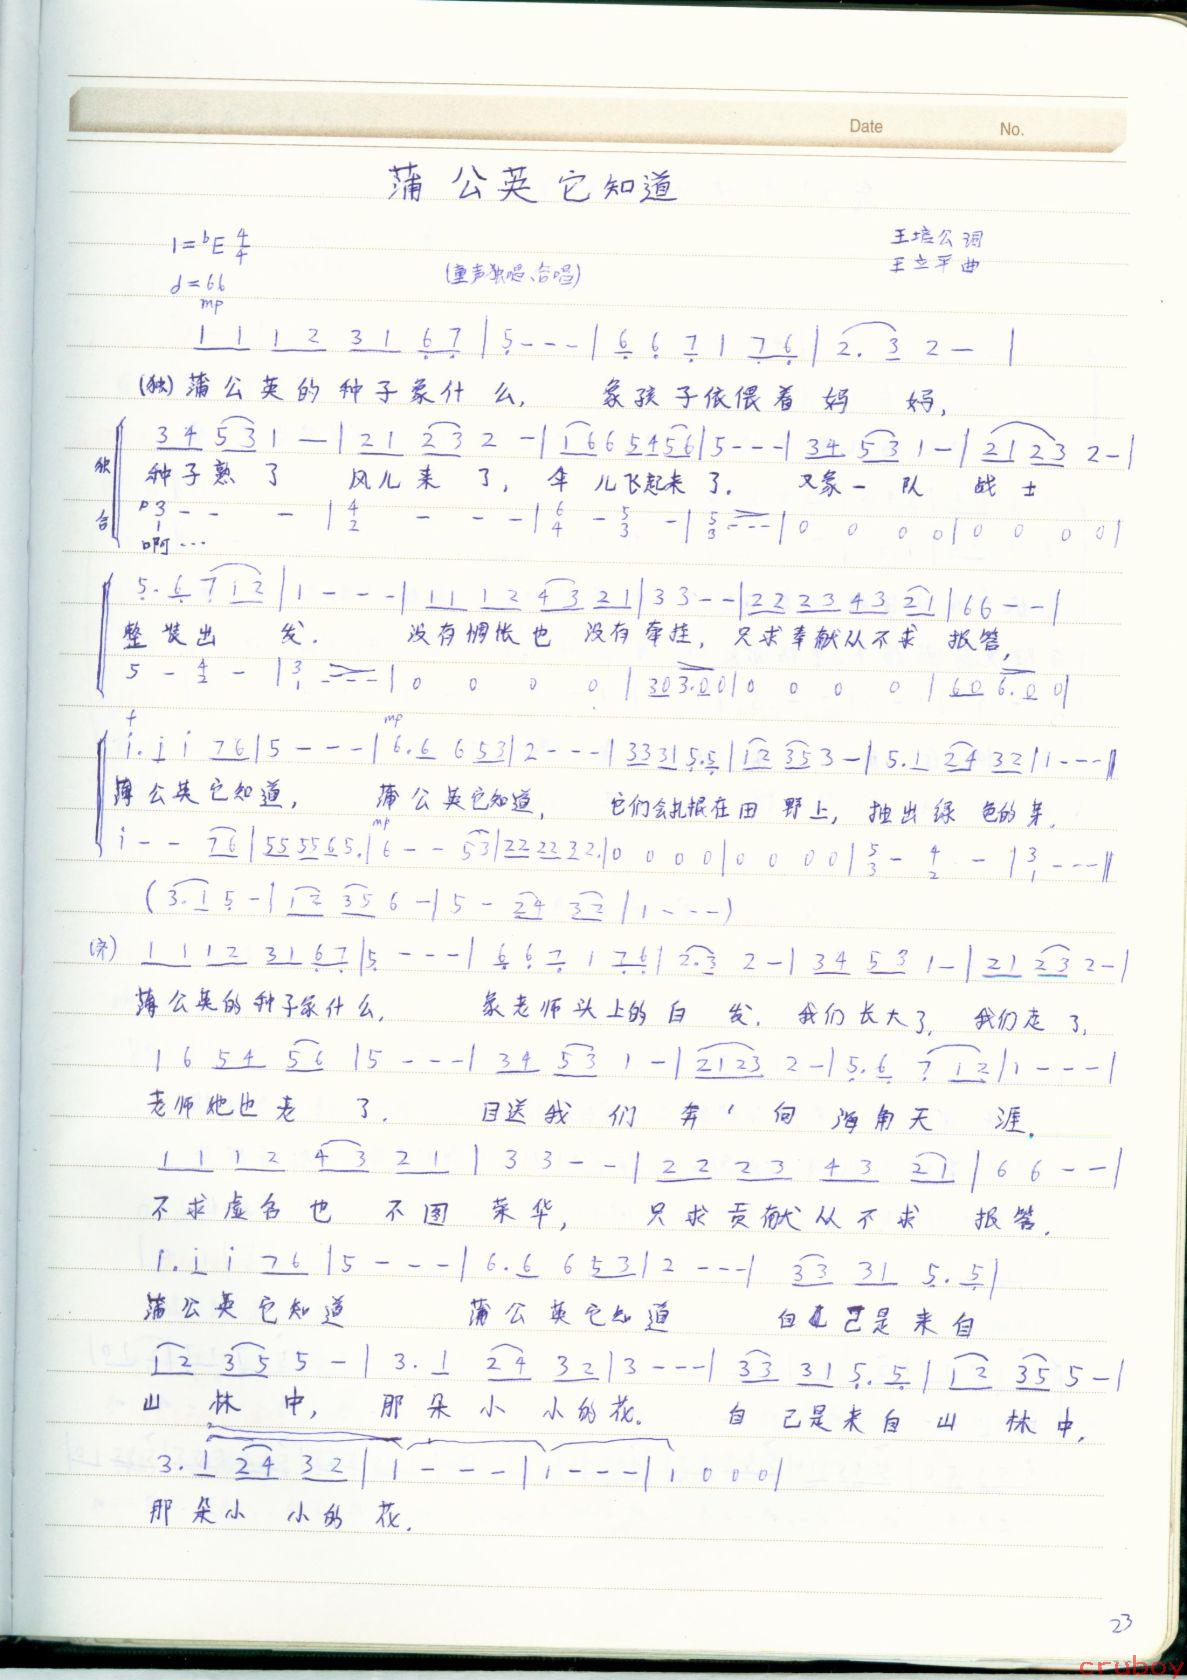 Date No.
蒲公英它知道
1=bE 4/4
王培公 词
♩=66
(童声独唱、合唱)
王立平 曲
mp
1 1 1 2 3 1 6 7 | 5 - - - | 6 6 7 1 7 6 | 2. 3 2 - |
(独) 蒲公英的种子象什么, 象孩子依偎着妈妈,
3 4 5 3 1 - | 2 1 2 3 2 - | 1 6 6 5 4 5 6 | 5 - - - | 3 4 5 3 1 - | 2 1 2 3 2 - |
独 种子熟了 风儿来了, 伞儿飞起来了. 又象一队战士
合 p 3/1 - - - | 4/2 - - - | 6/4 - 5/3 - | 5/3 - - - | 0 0 0 0 | 0 0 0 0 |
啊…
5. 6 7 1 2 | 1 - - - | 1 1 1 2 4 3 2 1 | 3 3 - - | 2 2 2 3 4 3 2 1 | 6 6 - - |
整装出发. 没有惆怅也没有牵挂, 只求奉献从不求报答,
5 - 4/2 - | 3/1 - - - | 0 0 0 0 | 3 0 3. 0 0 | 0 0 0 0 | 6 0 6. 0 0 |
f mp
i. i i 7 6 | 5 - - - | 6. 6 6 5 3 | 2 - - - | 3 3 3 1 5. 5 | 1 2 3 5 3 - | 5. 1 2 4 3 2 | 1 - - - ||
蒲公英它知道, 蒲公英它知道, 它们会扎根在田野上, 抽出绿色的芽.
mp
i - - 7 6 | 5 5 5 5 6 5. | 6 - - 5 3 | 2 2 2 2 3 2. | 0 0 0 0 | 0 0 0 0 | 5/3 - 4/2 - | 3/1 - - - ||
(3. 1 5 - | 1 2 3 5 6 - | 5 - 2 4 3 2 | 1 - - -)
(齐) 1 1 1 2 3 1 6 7 | 5 - - - | 6 6 7 1 7 6 | 2. 3 2 - | 3 4 5 3 1 - | 2 1 2 3 2 - |
蒲公英的种子象什么, 象老师头上的白发. 我们长大了, 我们走了,
1 6 5 4 5 6 | 5 - - - | 3 4 5 3 1 - | 2 1 2 3 2 - | 5. 6 7 1 2 | 1 - - - |
老师她也老了. 目送我们奔向海角天涯.
1 1 1 2 4 3 2 1 | 3 3 - - | 2 2 2 3 4 3 2 1 | 6 6 - - |
不求虚名也不图荣华, 只求贡献从不求报答.
1. i i 7 6 | 5 - - - | 6. 6 6 5 3 | 2 - - - | 3 3 3 1 5. 5 |
蒲公英它知道 蒲公英它知道 自己是来自
1 2 3 5 5 - | 3. 1 2 4 3 2 | 3 - - - | 3 3 3 1 5. 5 | 1 2 3 5 5 - |
山林中, 那朵小小的花. 自己是来自山林中,
3. 1 2 4 3 2 | 1 - - - | 1 - - - | 1 0 0 0 |
那朵小小的花.
23
cruboy